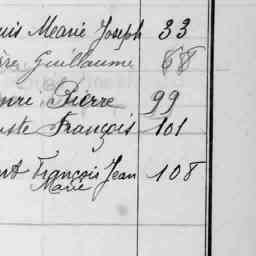 uis Marie Joseph 33
ère Guillaume 68
enri Pierre 99
uste François 101
ert François Jean 108
Marie